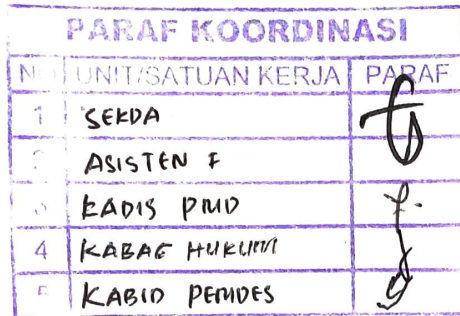 PARAF KOORDINASI
NO UNIT/SATUAN KERJA PARAF
1 SEKDA
2 ASISTEN I
3 KADIS PMD
4 KABAG HUKUM
5 KABID PEMDES